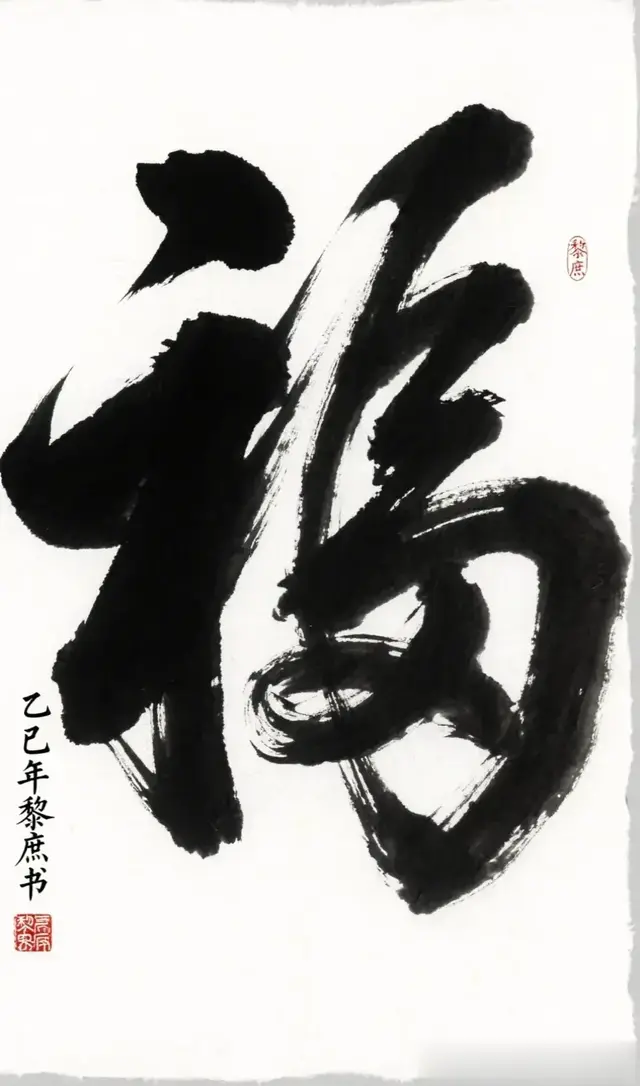 福
黎庶
乙巳年黎庶书